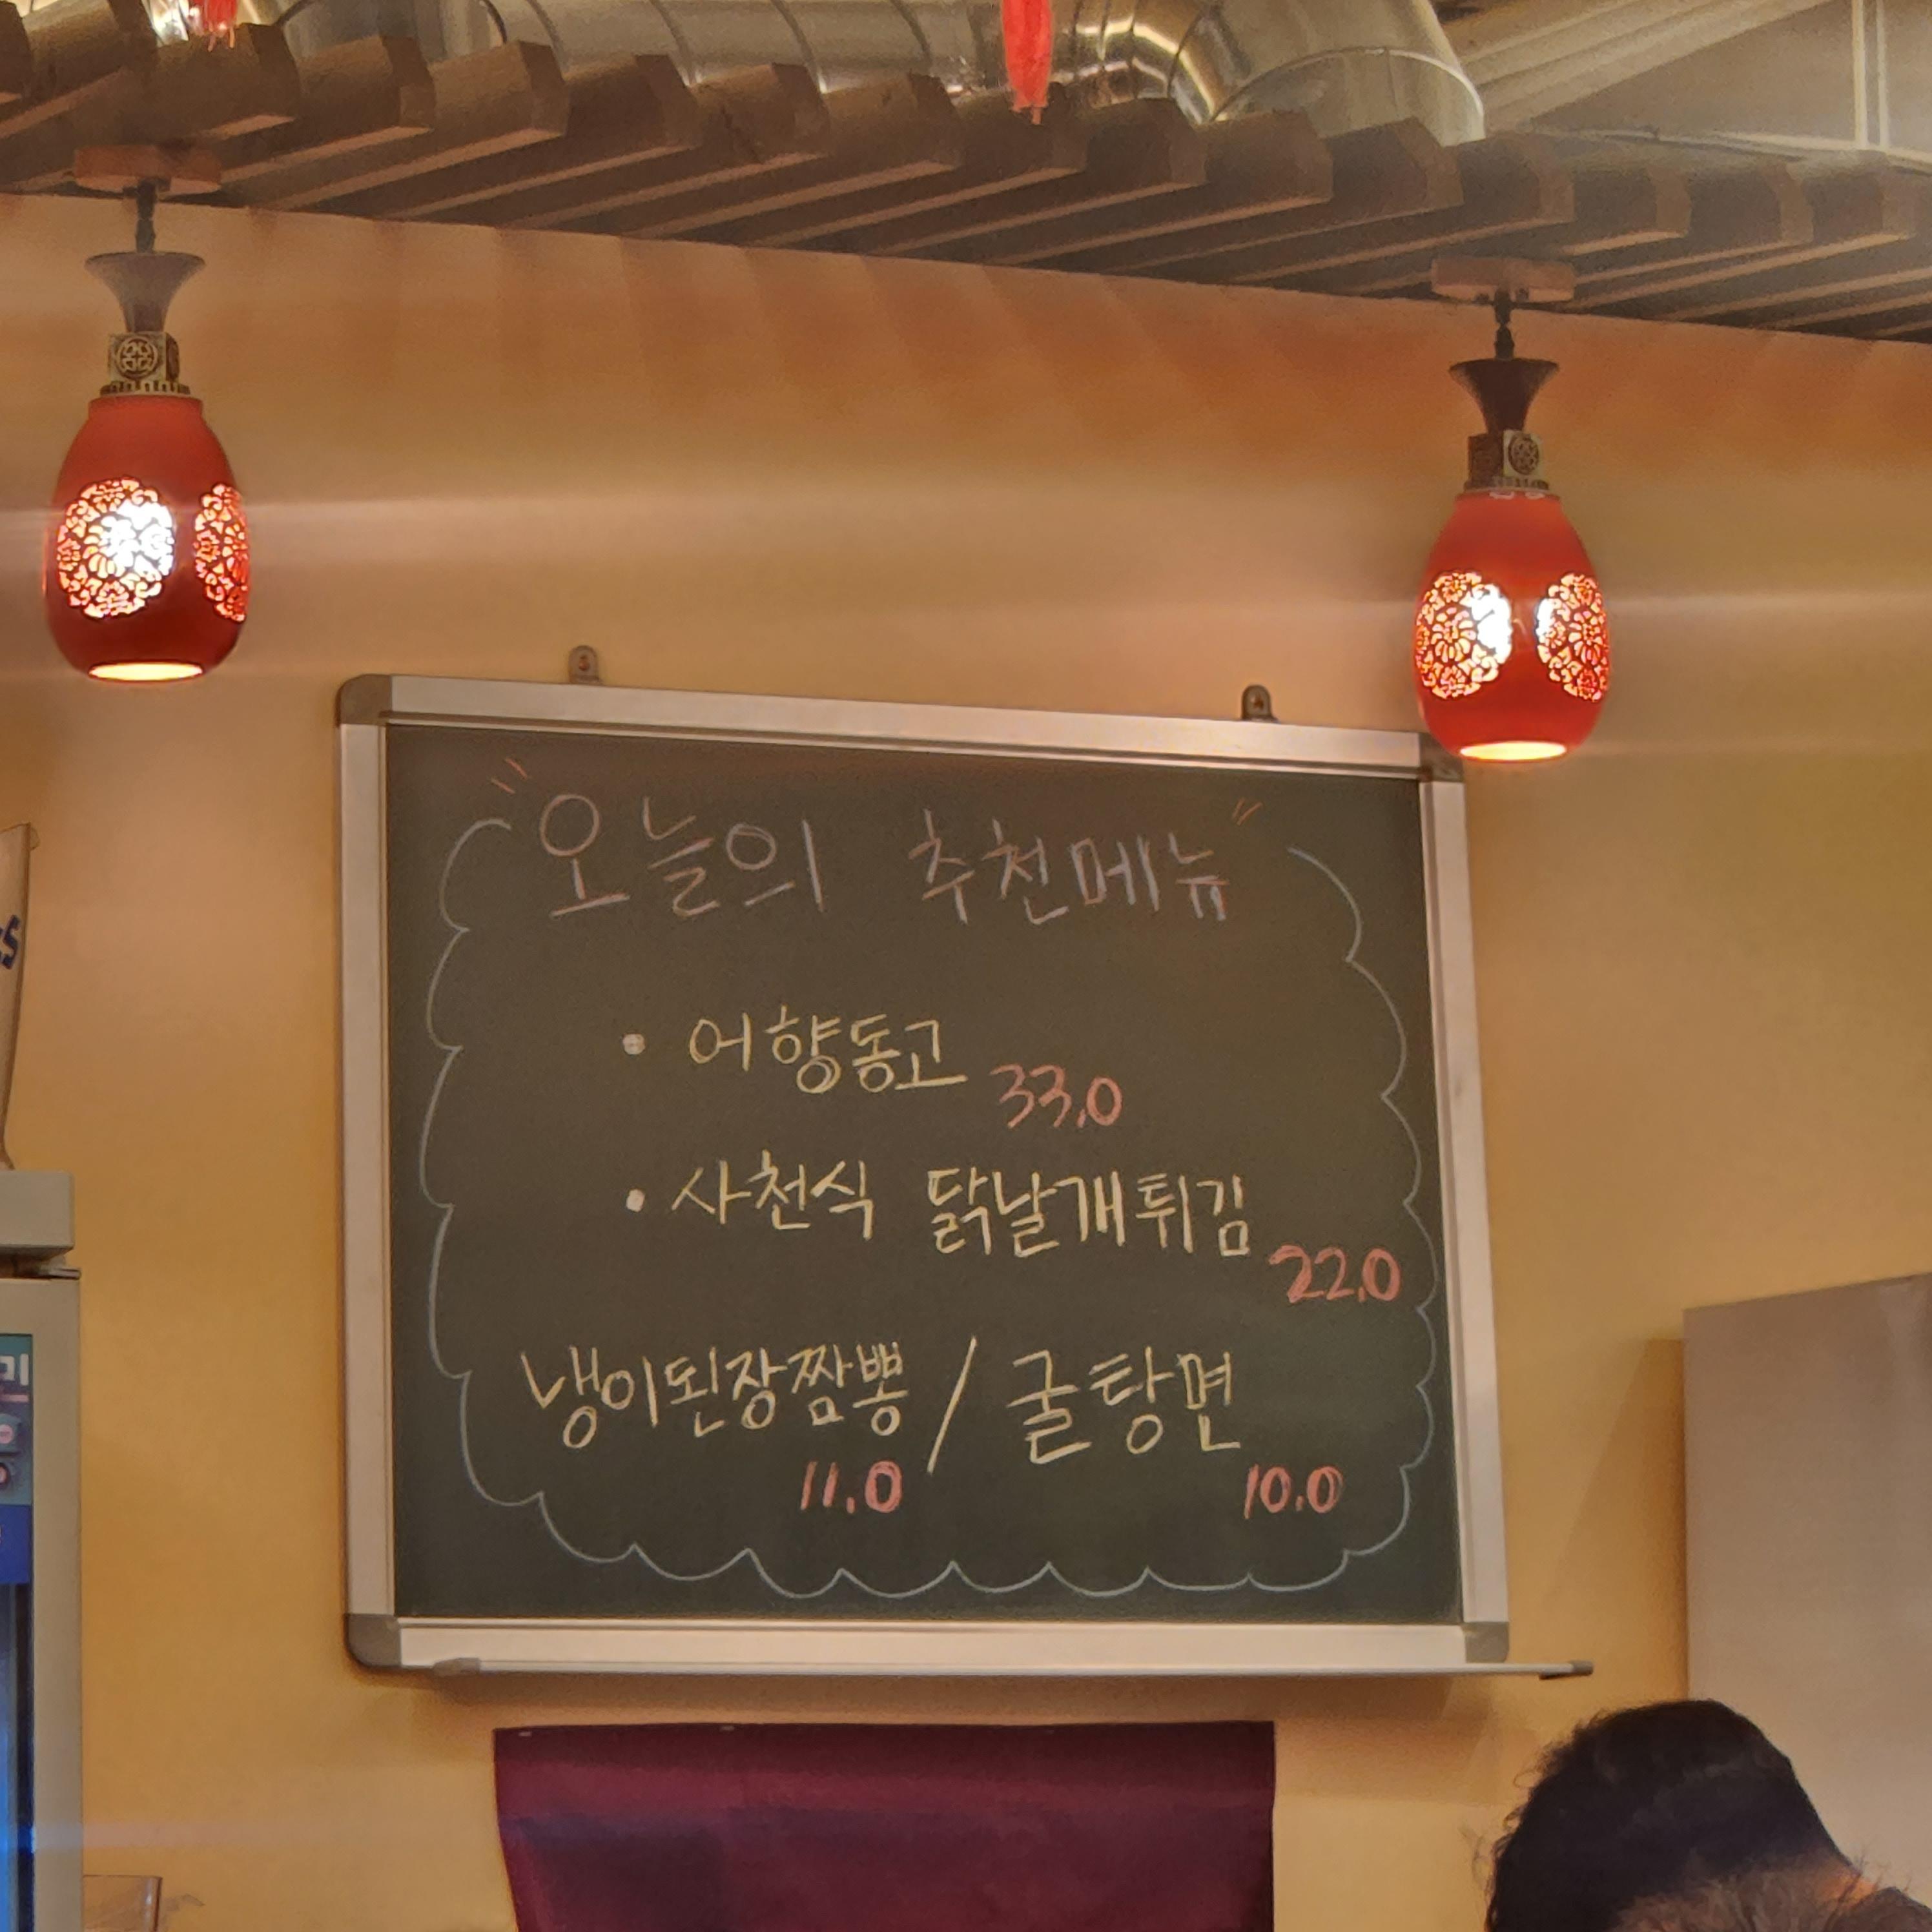 "오늘의 추천메뉴"
• 어향동고 33.0
• 사천식 닭날개튀김 22.0
냉이된장짬뽕 / 굴탕면
11.0 10.0